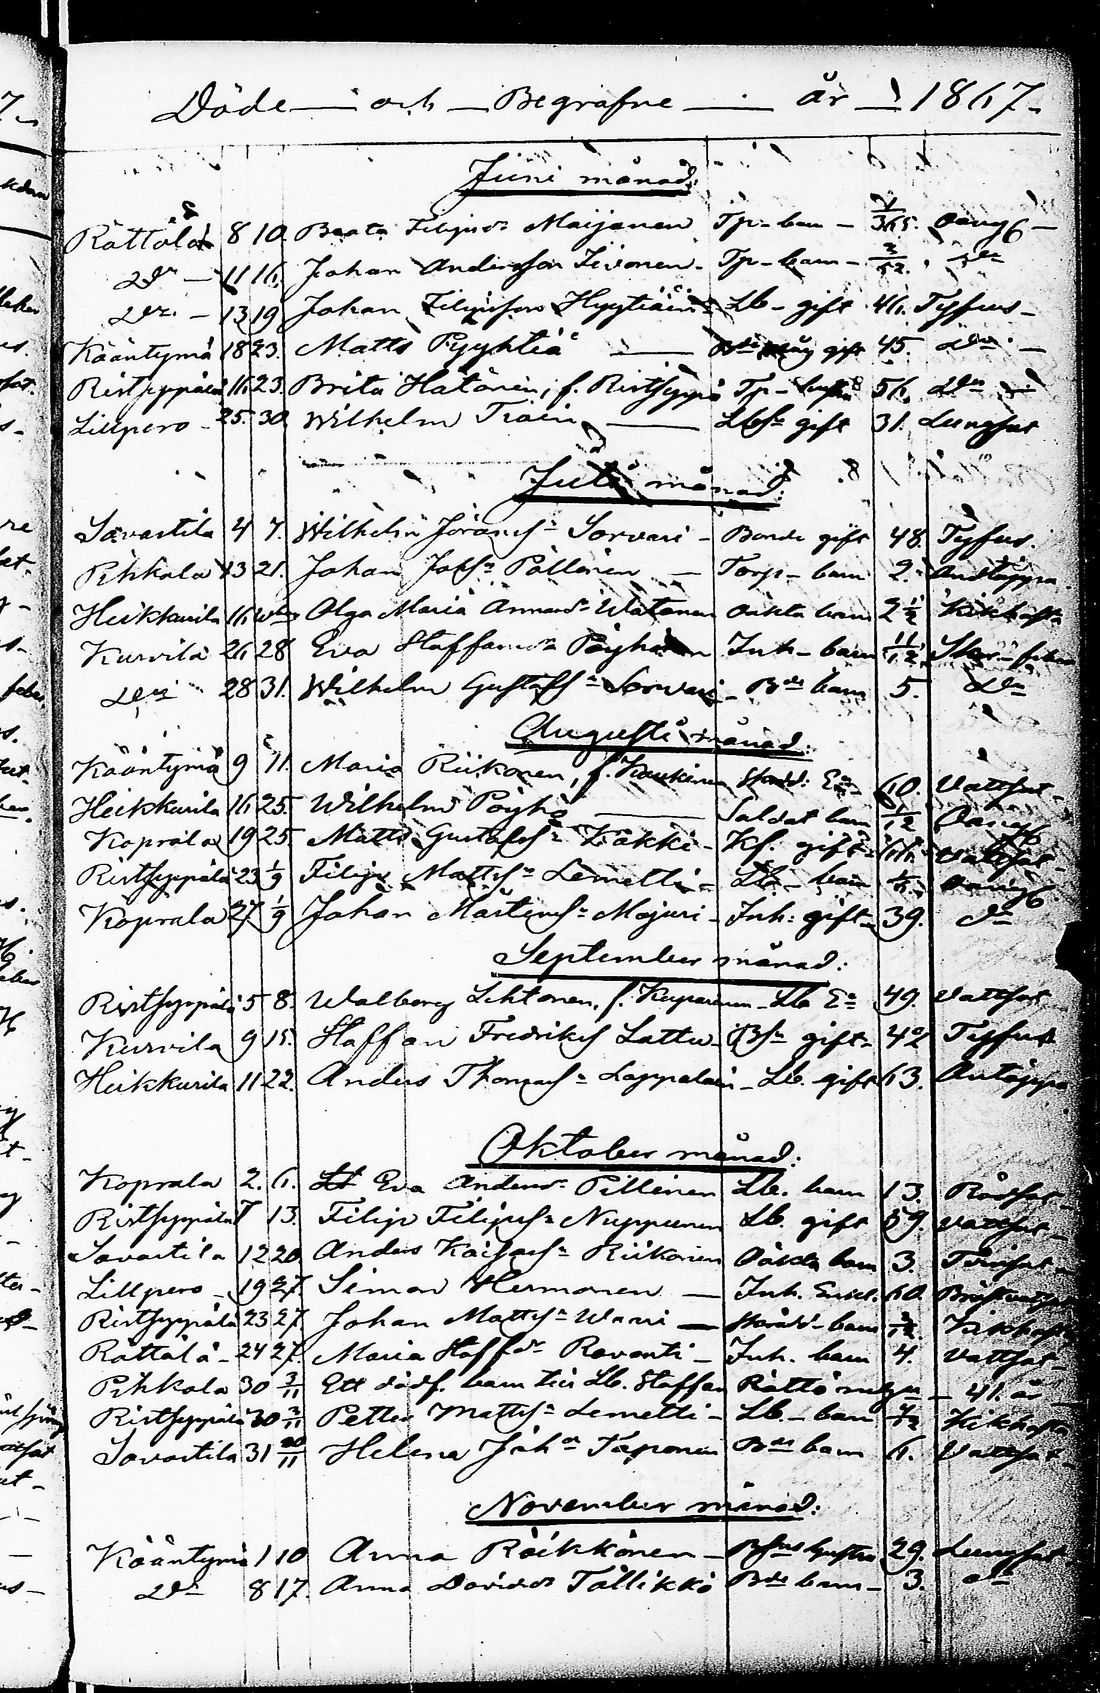 Döde — och — Begrafne — år — 1867.
Juni månad.
Rättölä 8 10. Beata Filipsdr Maijanen Tp-barn 1/365. Oangf
Do 11 16. Johan Andersson Iivonen Tp-barn 3/52. Do
Do 13 19 Johan Filipsson Hyytiäinen Lb- gift 46. Tyfus
Kääntymä 18 23. Matts Pyyhtiä gift 45. Do
Ristseppälä 16 23. Brita Hatönen, f. Ristseppä Tp- hustru 56. Do
Lillpero 25. 30. Wilhelm Train Lbsn gift 31. Lungsot
Juli månad.
Savastila 4 7. Wilhelm Göransn Sorvari Bonde gift 48. Tyfus.
Pihkala 13 21. Johan Jaksn Pöllönen Torp- barn 2. Andtäppa
Heikkurila 16 Olga Maria Annasdr Watanen oäkta barn 2 1/2 Kikhosta
Kurvila 26 28 Eva Staffansdr Pöyhönen Inh- barn 11/12 Skar-feber
Do 28 31. Wilhelm Gustafsn Sorvari Bdes barn 5. Do
Augusti månad.
Kääntymä 9 11. Maria Riikonen, f. Kaukinen Enk. 60. Vattsot
Heikkurila 16 25. Wilhelm Pöyhö Soldat barn 1/12 Oangf
Koprala 19 25. Matts Gustafsn Käkki Kf. gift 66. Vattsot
Ristseppälä 23 1/9 Filip Mattsn Lemetti Lb- barn Oangf.
Koprala 27 1/9 Johan Mårtensn Majuri Inh: gift 39. Do
September månad.
Ristseppälä 5 8. Walborg Lehtonen, f. Kuparinen Lb En 49. Vattsot
Kurvila 9 15. Staffan Fredriksn Lattu Bsn gift 42 Tyfus
Heikkurila 11 22. Anders Thomasn Lappalain Lb. gift 63. Antäppa
Oktober månad.
Koprala 2. 6. Eva Andersdr Pillinen Lb. barn 13. Rödsot
Ristseppälä 7 13. Filip Filipsn Nuppunen Lb. gift 59. Vattsot
Savastila 12 20. Anders Kaisasn Riikonen Oäkta barn 3. Tvinsot
Lillpero 19 27. Simon Hermonen Inh. Enkl. 60.
Ristseppälä 23 27. Johan Mattsn Warri barn Kikhosta
Rättölä 24 27. Maria Staffdr Revonti Inh. barn 4. Vattsot
Pihkala 30 3/11 Ett dödf. barn till Lb. Staffan Rättö 41. år
Ristseppälä 30 3/11 Petter Mattsn Lemetti Lb- barn Kikhosta
Savastila 31 Helena Johdr Taponen Bdes barn 6. Vattsot
November månad:
Kääntymä 1 10 Anna Räikkönen hustru 29. Lungsot
Do 8 17. Anna Davidsdr Tällikkö Bdes barn 3. Do